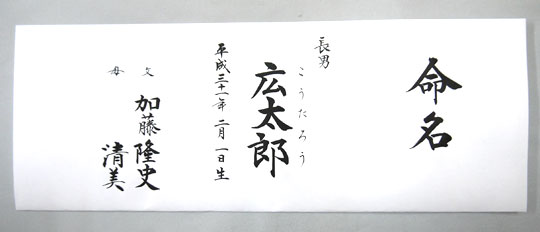 命名
長男
こうたろう
広太郎
平成三十一年 二月一日生
父 加藤 隆史
母 清美